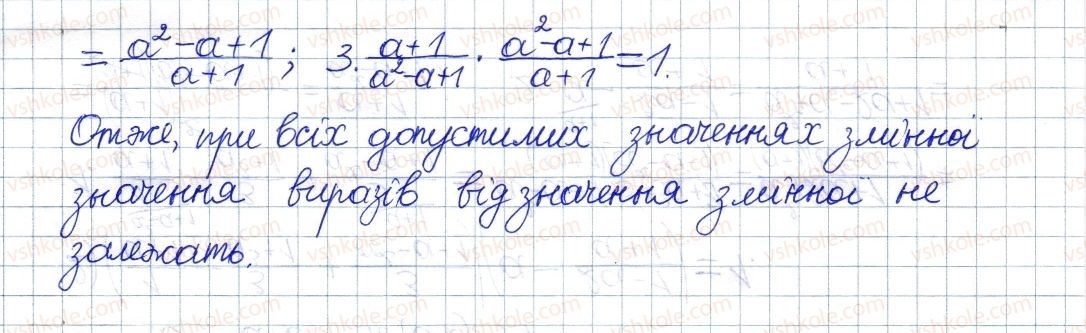 = a²-a+1 / a+1 ; 3. a+1 / a²-a+1 · a²-a+1 / a+1 = 1.
Отже, при всіх допустимих значеннях змінної
значення виразів від значення змінної не
залежать.